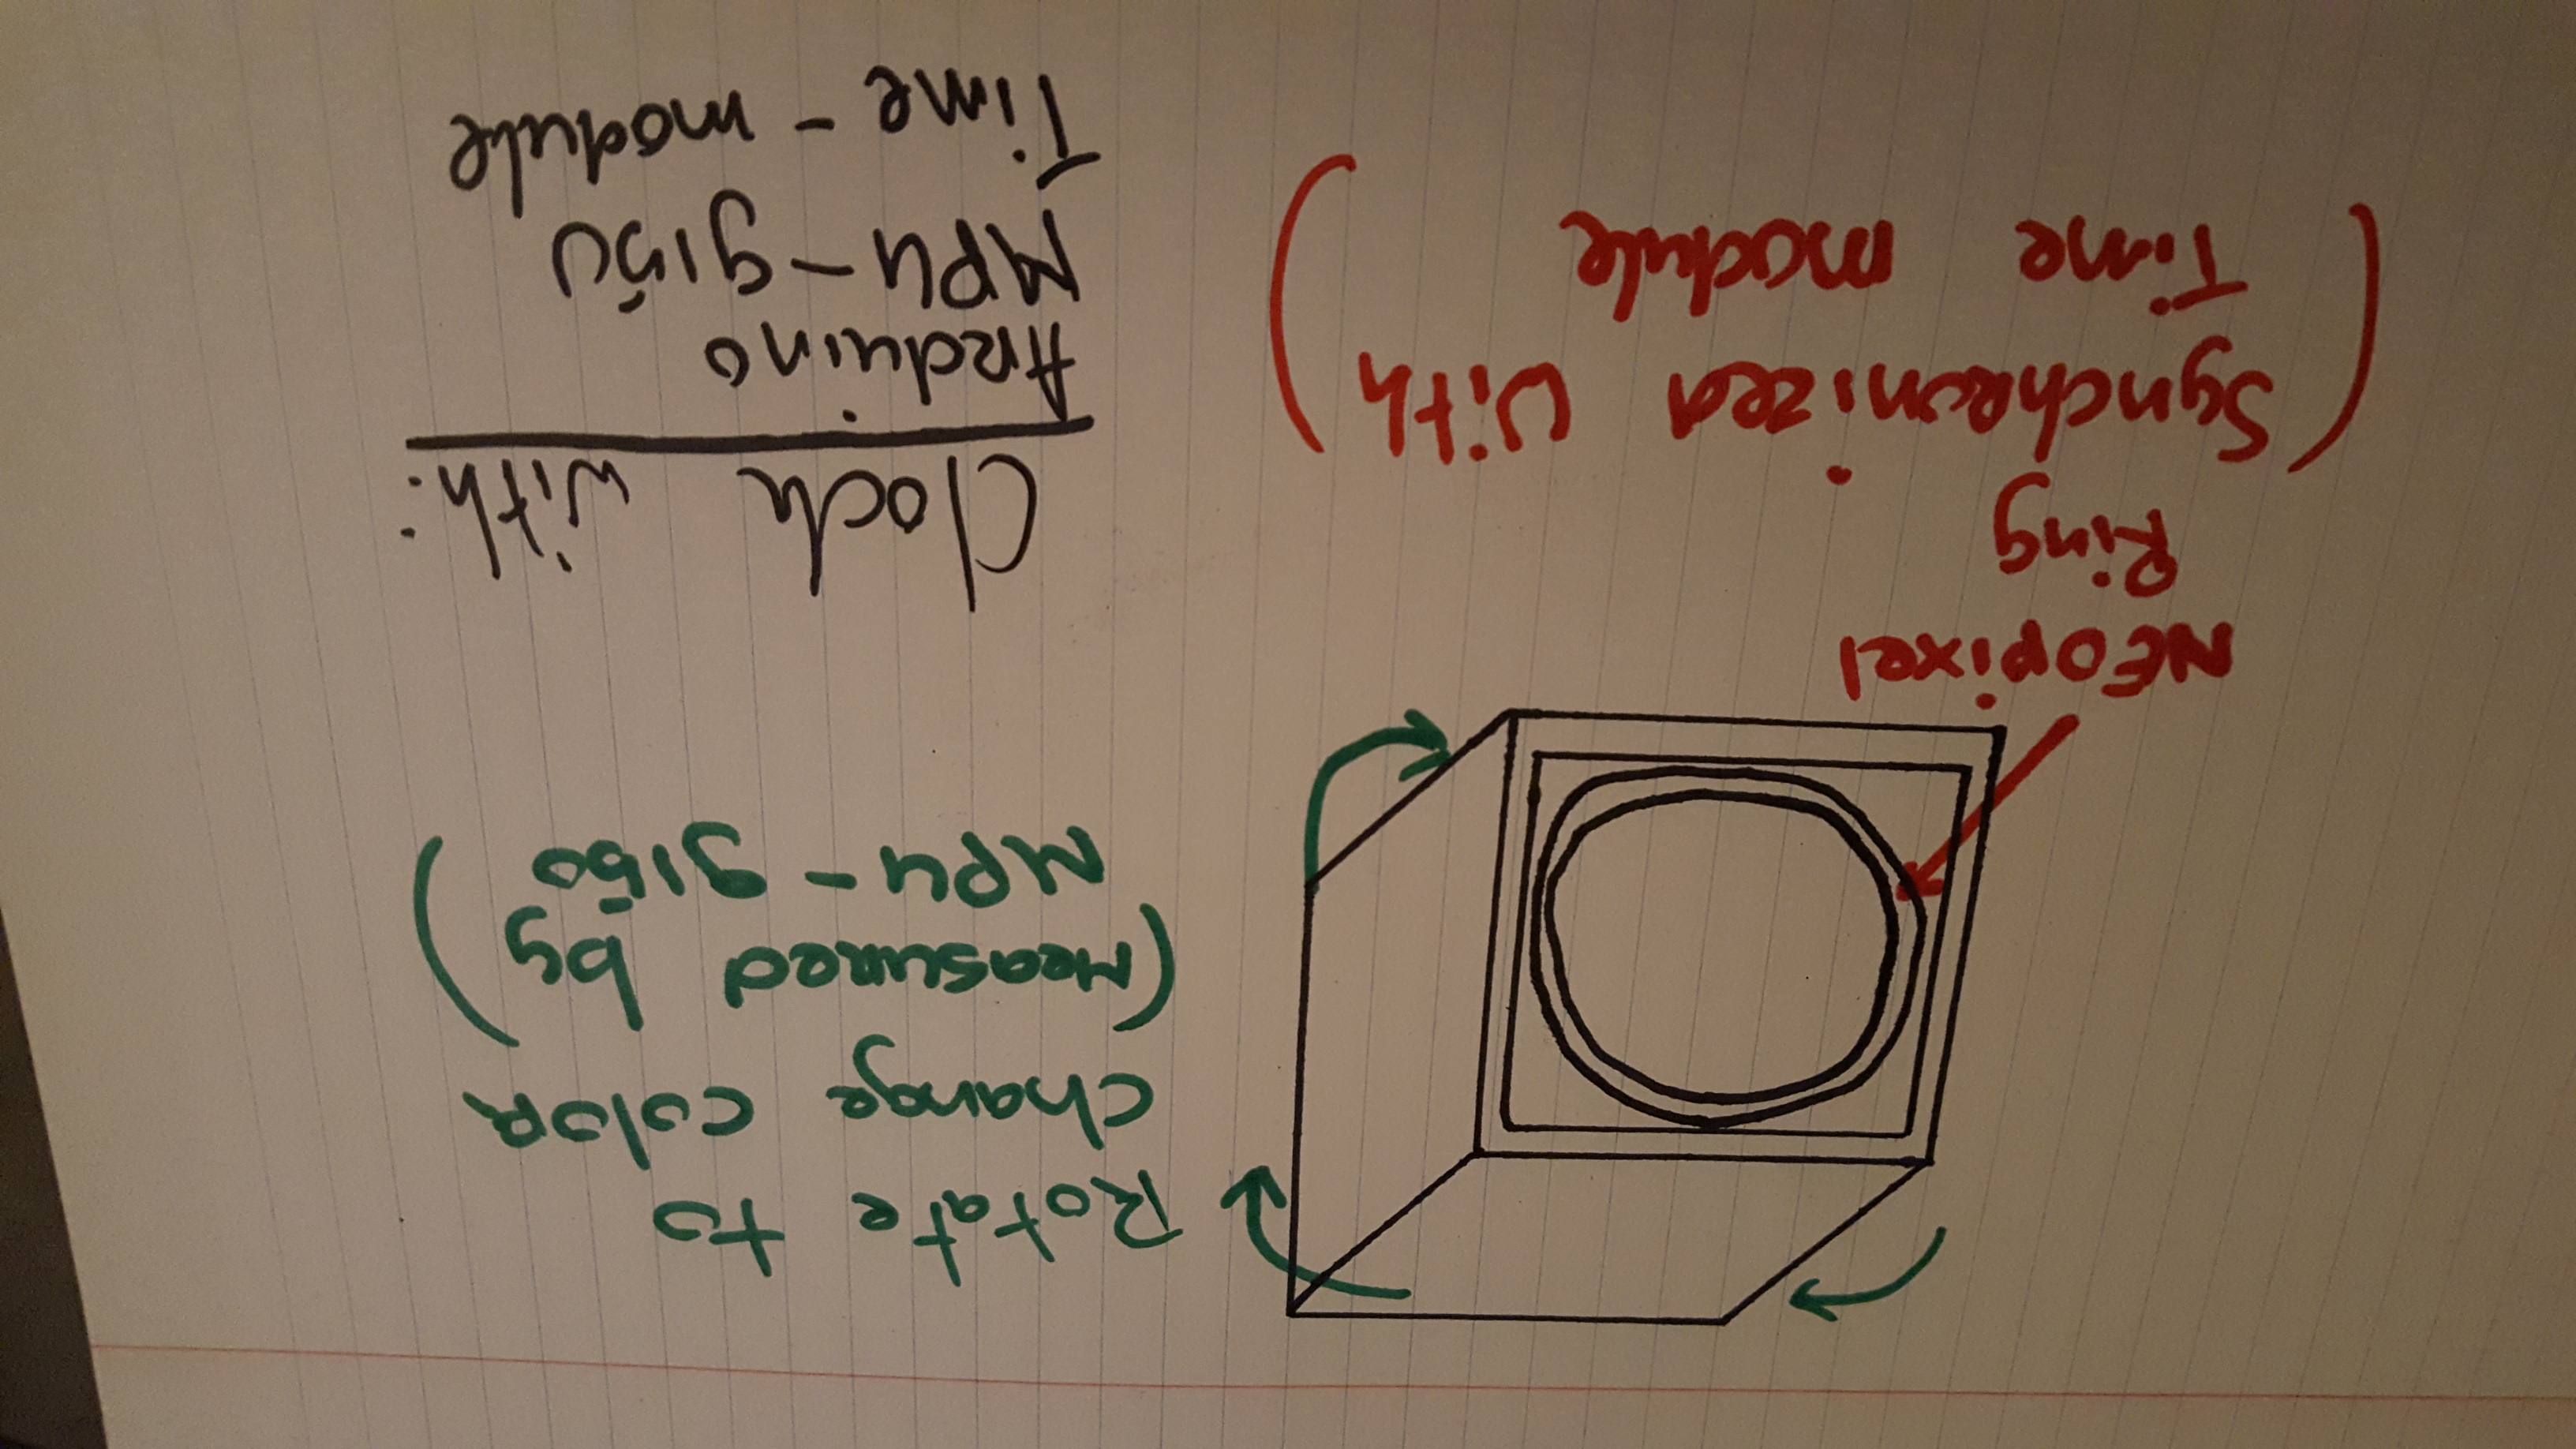 Rotate to
change color
(Measured by
MPU-9150)
NEOpixel
Ring
(Synchronized With
Time module)
Clock with:
Arduino
MPU-9150
Time-module